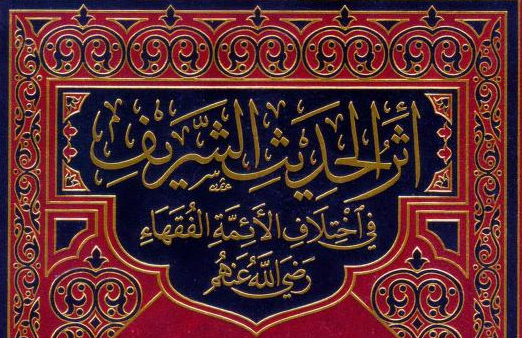 أثر الحديث الشريف
في اختلاف الأئمة الفقهاء
رضي الله عنهم